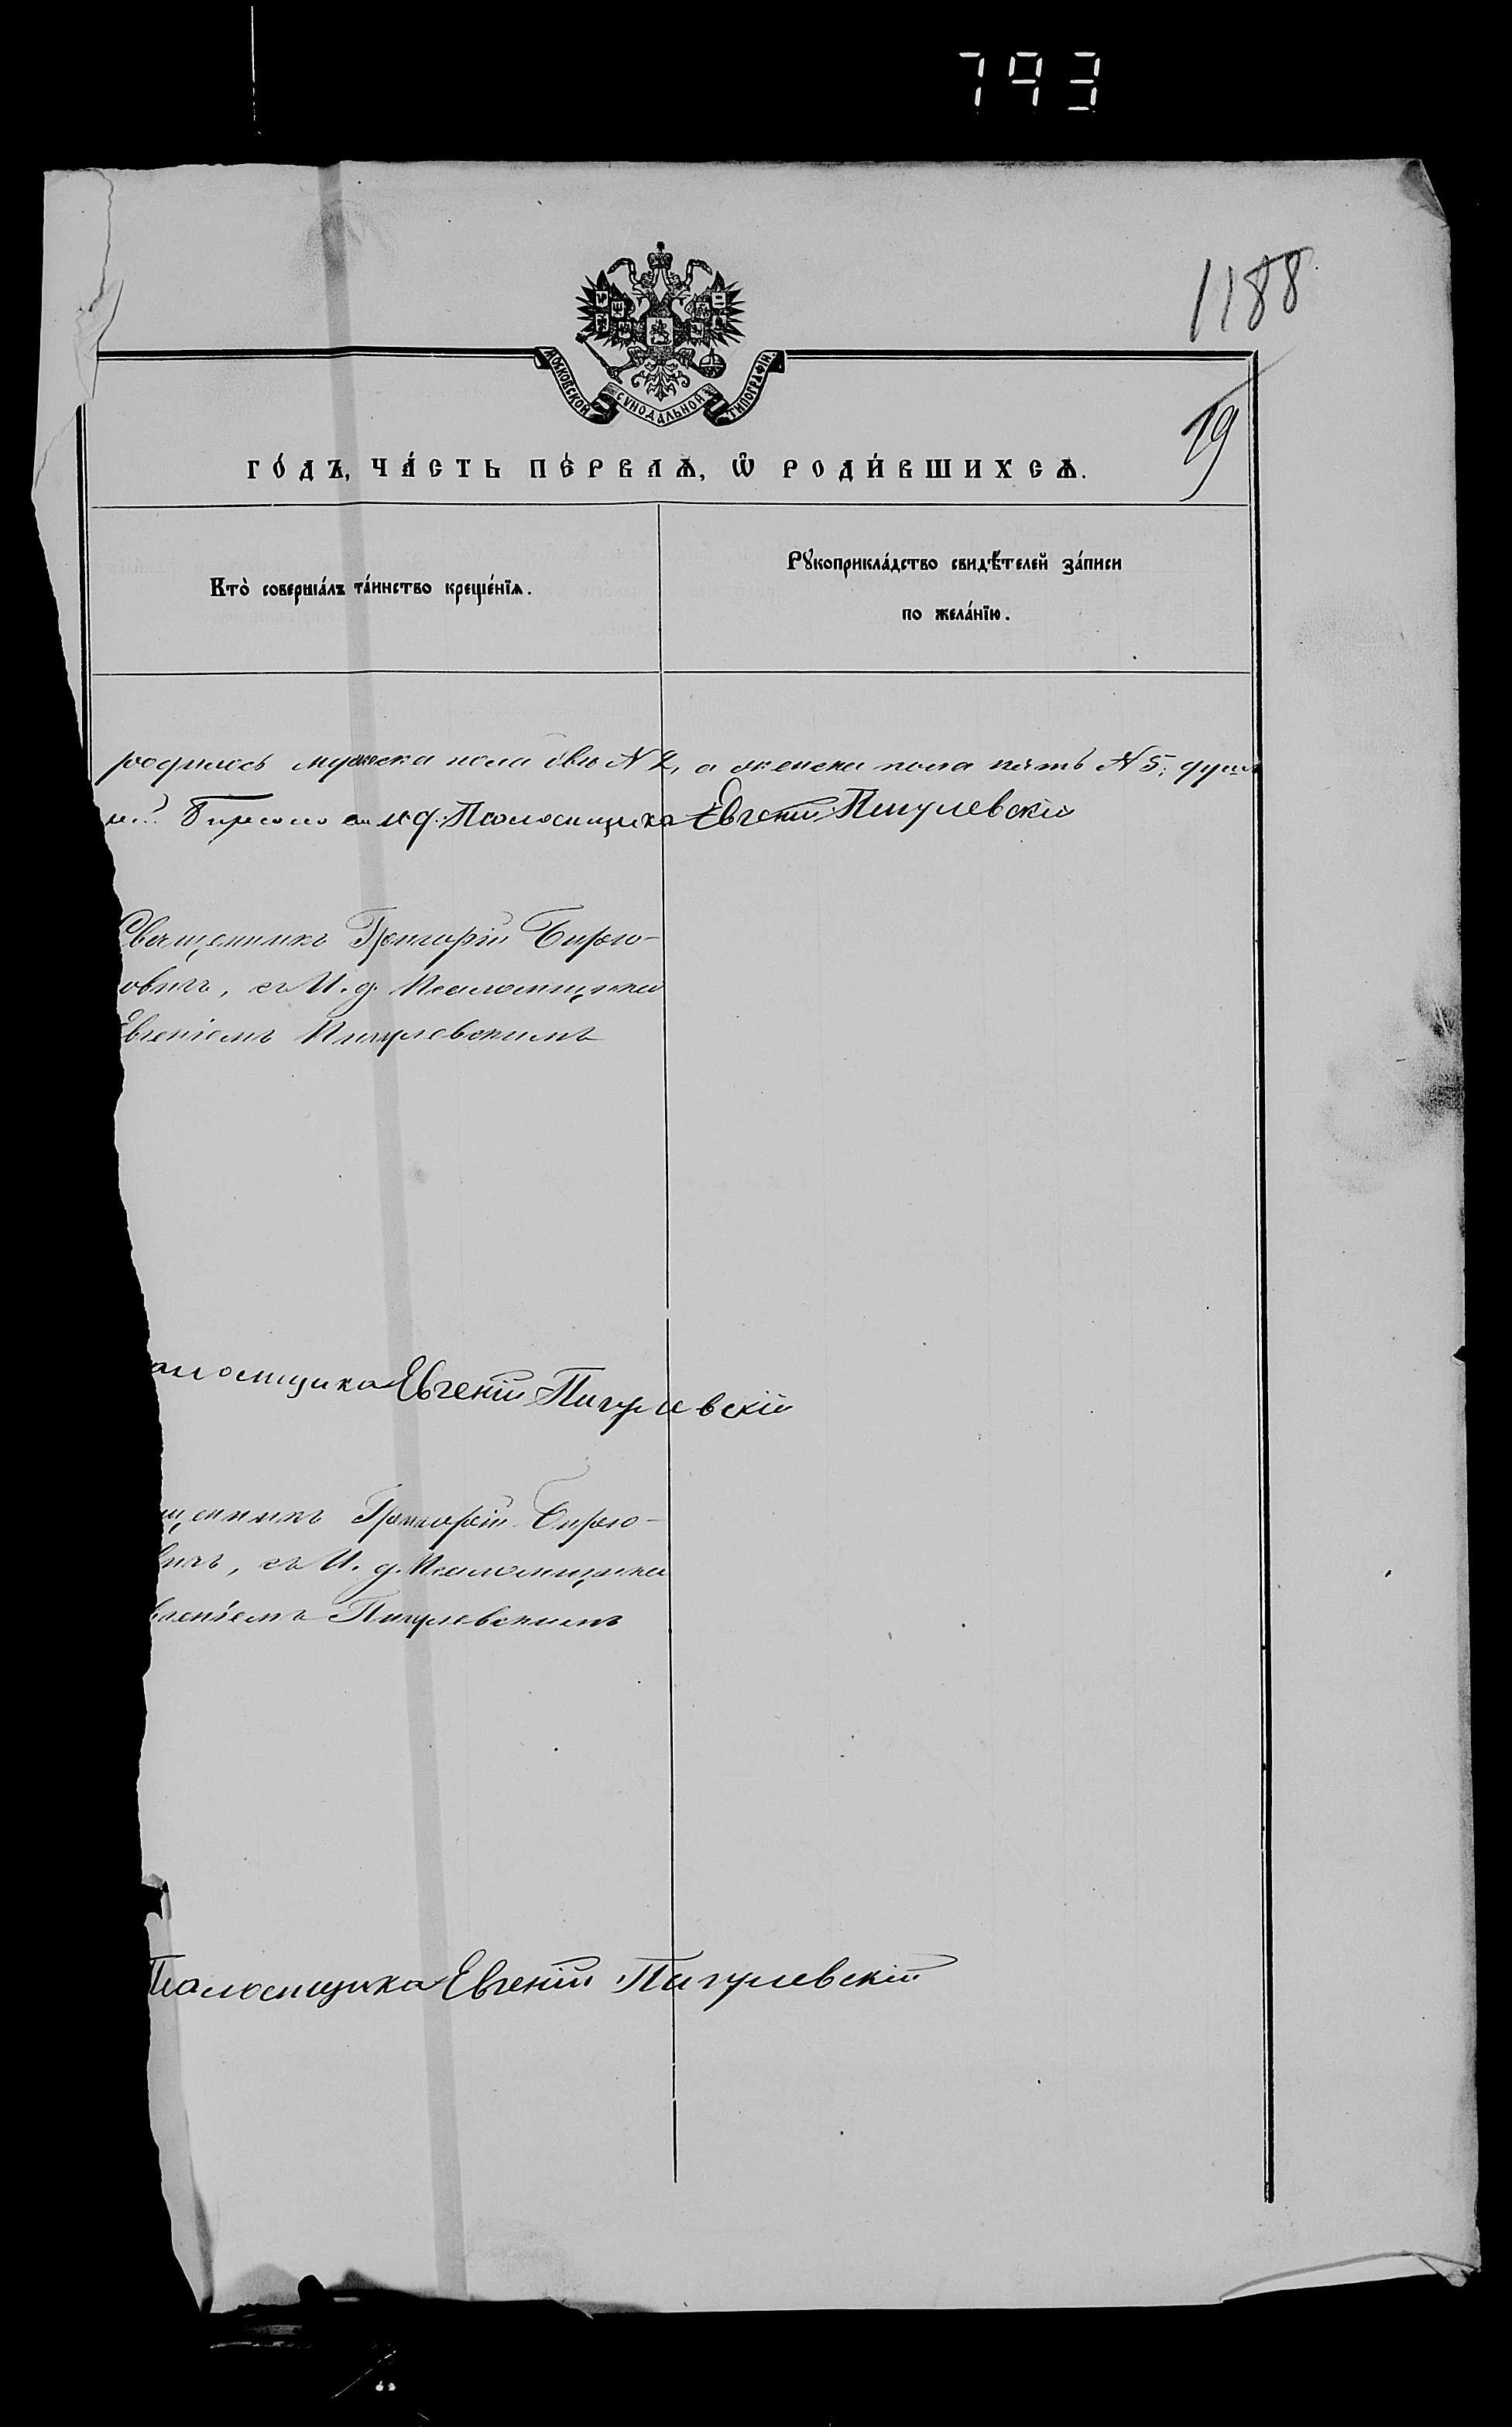 793
1188
МОСКОВСКОЙ СУНОДАЛЬНОЙ ТИПОГРАФІИ.
19
ГО́ДЪ, ЧА́СТЬ ПЕ́РВАѦ, Ѽ РОДИ́ВШИХСѦ.
Кто̀ соверша́лъ та́инство креще́нїѧ.
Рꙋкоприкла́дство свидѣ́телей за́писи
по жела́нїю.
родилось мужеска пола двѣ №2, а женска пола пять №5; душъ
и.д. Псаломщика Евгеній Пигулевскій
Священникъ Григорій Бирю-
овичъ, съ И. д. Псаломщика
Евгеніемъ Пигулевскимъ
аломщика Евгеній Пигулевскій
щенникъ Григорій Бирю-
вичъ, съ И. д. Псаломщика
вгеніемъ Пигулевскимъ
Псаломщика Евгеній Пигулевскій